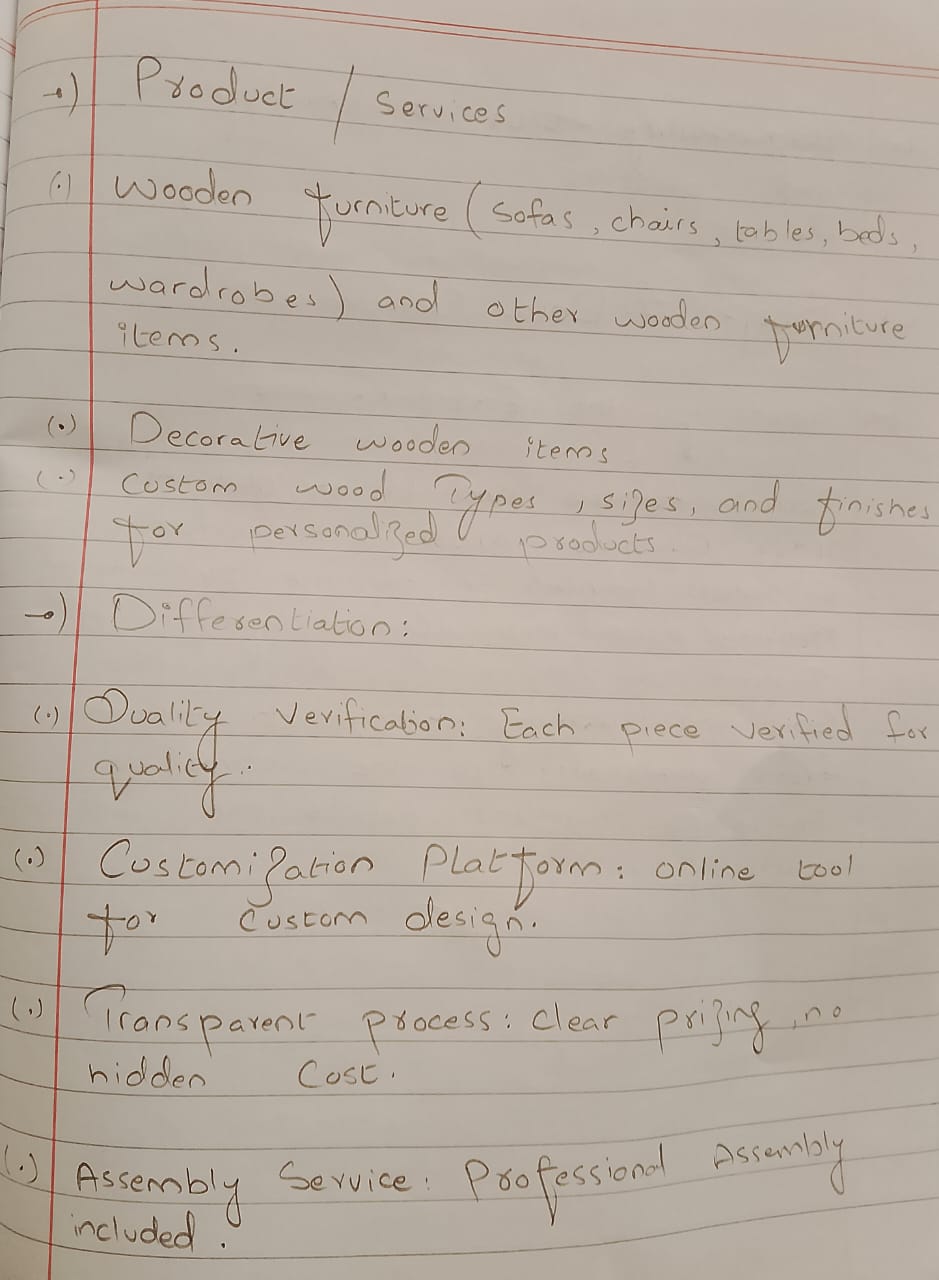 →) Product / Services
(.) Wooden furniture (Sofas, chairs, tables, beds,
wardrobes) and other wooden furniture
items.
(.) Decorative wooden items
(.) Custom wood Types, sizes, and finishes
for personalized products.
→) Differentiation:
(.) Quality Verification: Each piece verified for
quality.
(.) Customization Platform: online tool
for Custom design.
(.) Transparent process: Clear prizing, no
hidden Cost.
(.) Assembly Service: Professional Assembly
included.